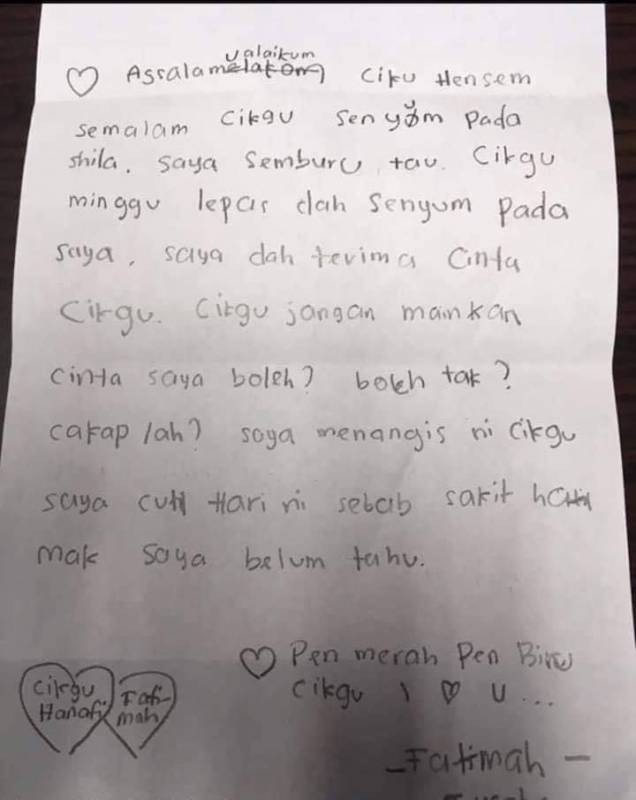 ualaikum
♡ Assalamelakom Ciku Hensem
semalam Cikgu senyum pada
shila. saya semburu tau. Cikgu
minggu lepas dah senyum pada
saya, saya dah terima cinta
Cikgu. Cikgu jangan mainkan
cinta saya boleh? boleh tak?
cakap lah? saya menangis ni Cikgu
saya cuti Hari ni sebab sakit hati
mak saya belum tahu.
♡ Pen merah Pen Biru
Cikgu I ♡ U...
Cikgu Hanafi
Fati-
mah
- Fatimah -